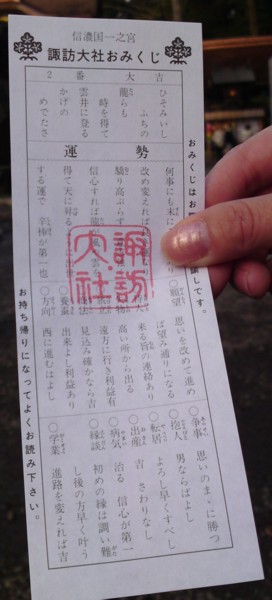 信濃国一之宮
諏訪大社おみくじ
2番
大吉
ひそみいし
ふちの
龍らも
時を得て
雲井に登る
かげの
めでたさ
運勢
何事にも末に
改め変えれば
驕り高ぶらず
信心すれば龍
得て天に昇る
する運で 辛棒が第一也
○願望
思いを改めて進め
ば望み通りになる
来る旨の連絡あり
高い所から出る
遠方に行き利益有
見込み確かなら吉
出来よし利益あり
○方向
西に進むはよし
○争事
思いのまゝに勝つ
○抱人
男ならばよし
○転居
よろし早くすべし
○出産
吉 さわりなし
○病気
治る 信心が第一
○縁談
初めの縁は調い難
し後の方早く叶う
○学業
進路を変えれば吉
諏訪大社
おみくじはお
です。
お持ち帰りになってよくお読み下さい。